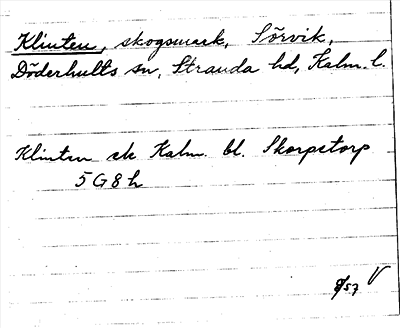 Klinten, skogsmark, Sörvik,
Döderhults sn, Stranda hd, Kalm. l.
Klinten ek Kalm. bl. Skorpetorp
5 G 8 h
8/53 V